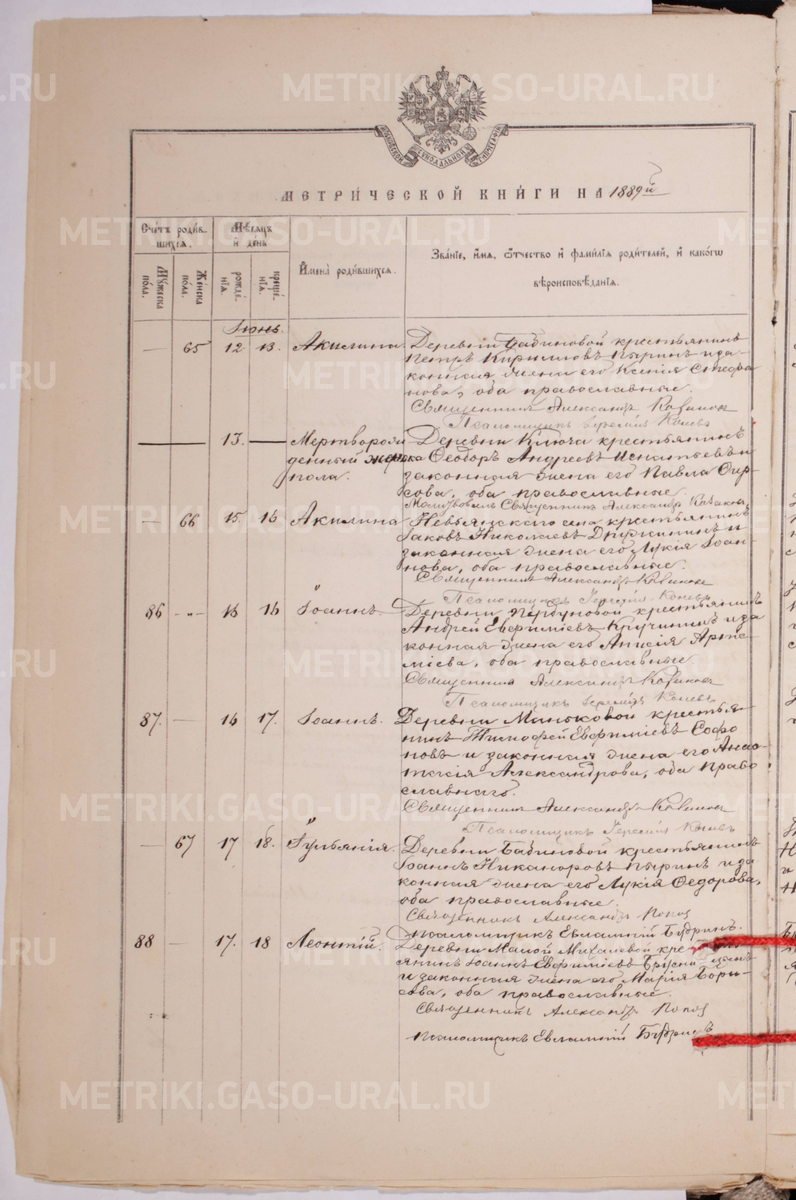 METRIKI.GASO-URAL.RU
МЕТРИЧЕСКОЙ КНИГИ НА 1889й
Счетъ родив-
шихся.
Мѣсяцъ
и день
Имена родившихся.
Званіе, имя, отчество и фамилія родителей, и какого
вѣроисповѣданія.
Мужеска
пола.
Женска
пола.
рожде-
нія.
креще-
нія.
Іюнь.
— 65 12 13. Акилина. Деревни Бабиновой крестьянинъ
Петръ Кириловъ Пыринъ и за-
конная жена его Ксенія Стефа-
нова, оба православные.
Священникъ Александръ
Псаломщикъ Іеремія Коневъ
13. — Мертворож-
денный женска
пола.
Деревни Ключи крестьянинъ
Ѳеодоръ Андреевъ Игнатьевъ и
законная жена его Павла
оба православные.
Священникъ Александръ
— 66 15 16 Акилина Невьянскаго села крестьянинъ
Іаковъ Николаевъ и
законная жена его Лукія Іоан-
нова, оба православные.
Священникъ Александръ
Псаломщикъ Іеремія Коневъ
86 — 15 16 Іоаннъ Деревни крестьянинъ
Андрей Евфиміевъ и за-
конная жена его Анисія Арте-
міева, оба православные
Священникъ Александръ
Псаломщикъ Іеремія Коневъ
87. — 16 17. Іоаннъ. Деревни Маньковой крестья-
нинъ Тимофей Евфиміевъ Софо-
новъ и законная жена его Анас-
тасія Александрова, оба право-
славные.
Священникъ Александръ
Псаломщикъ Іеремія Коневъ
— 67 17 18. Іуліанія. Деревни Бабиновой крестьянинъ
Іоаннъ Никаноровъ Пыринъ и за-
конная жена его Лукія Ѳедорова,
оба православные.
Священникъ Александръ Попов
Псаломщикъ Евлампій
88 — 17. 18 Леонтій. Деревни Малой Михалевой крестья-
янинъ Іоаннъ Евфиміевъ
и законная жена его Марія Бори-
сова, оба православные.
Священникъ Александръ Попов
Псаломщикъ Евлампій